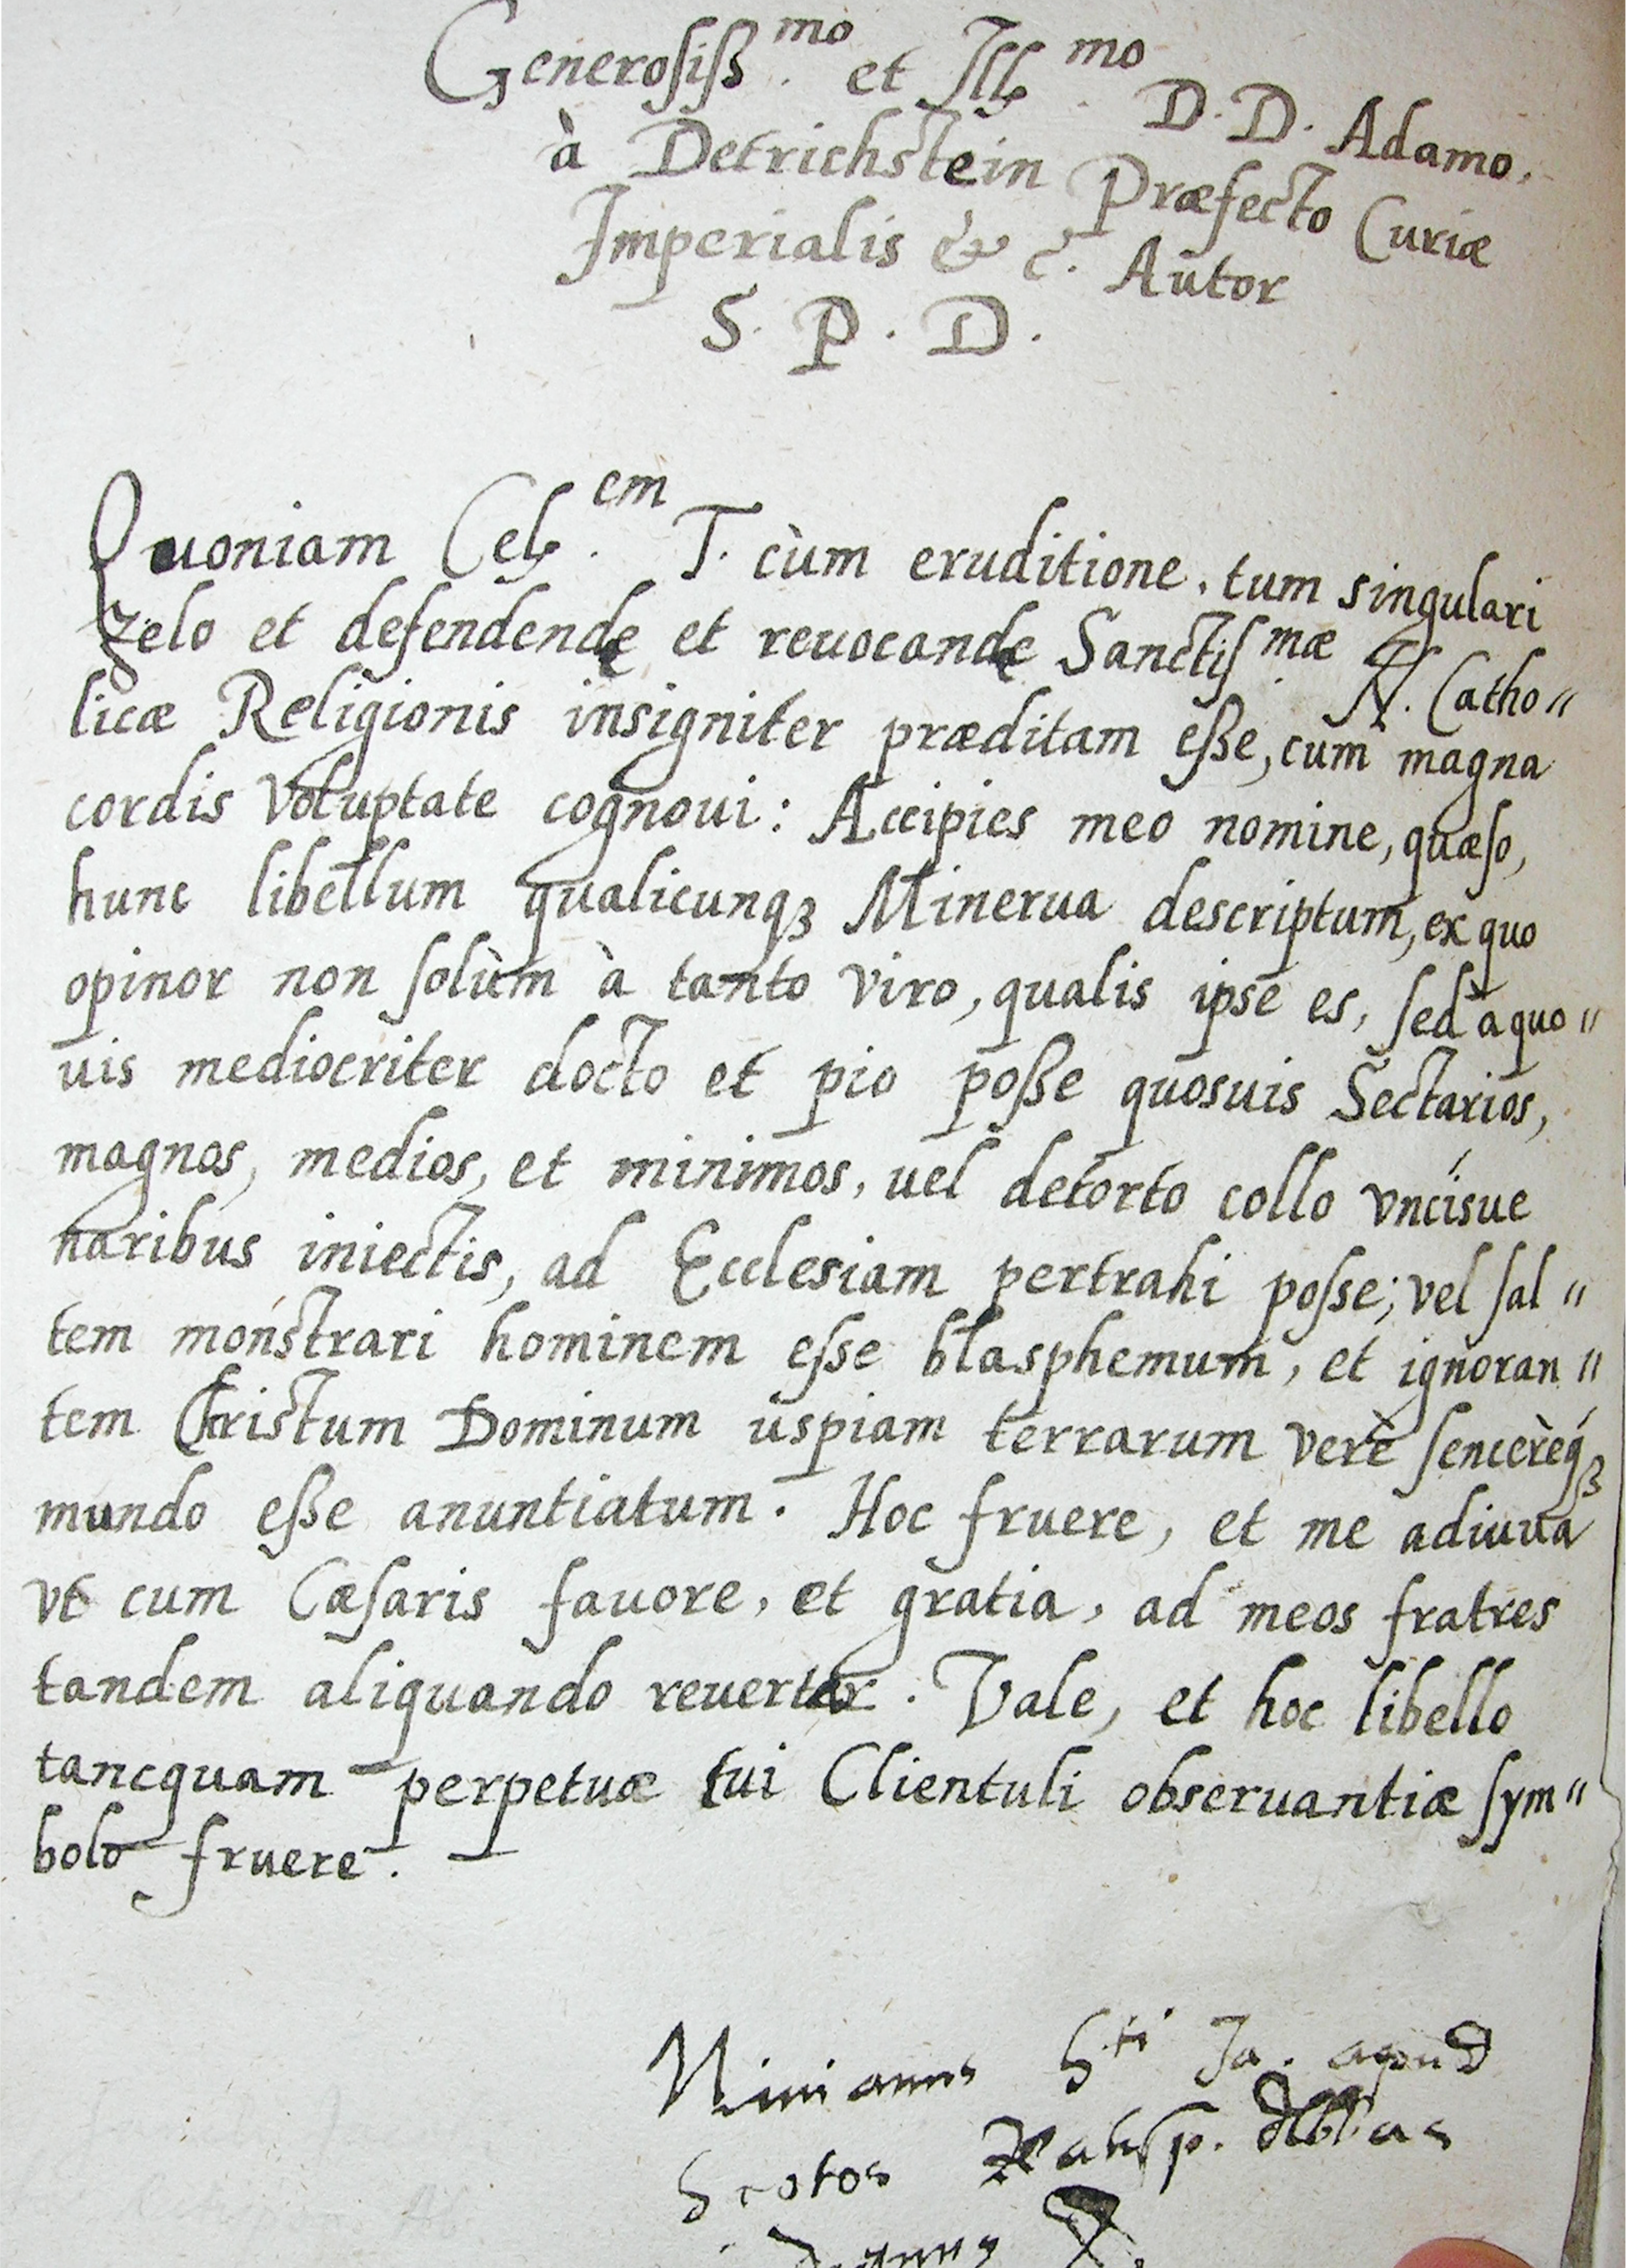 Generosiss.mo et Ill.mo D. D. Adamo.
à Detrichstein Præfecto Curiæ
Imperialis & c. Autor
S. P. D.
Quoniam Cels.em T. cùm eruditione, tum singulari
zelo et defendendę et reuocandę Sanctiss.mæ N. Catho〃
licæ Religionis insigniter præditam esse, cum magna
cordis voluptate cognoui: Accipies meo nomine, quæso,
hunc libellum qualicunqꝫ Minerua descriptum, ex quo
opinor non solùm à tanto viro, qualis ipse es, sed à quo〃
uis mediocriter docto et pio posse quosuis Sectarios,
magnos, medios, et minimos, uel detorto collo vncisue
naribus iniectis, ad Ecclesiam pertrahi posse; vel sal〃
tem monstrari hominem esse blasphemum, et ignoran〃
tem Christum Dominum uspiam terrarum verè sencerèqꝫ
mundo esse anuntiatum. Hoc fruere, et me adiuua
vt cum Cæsaris fauore, et gratia, ad meos fratres
tandem aliquando reuertar. Vale, et hoc libello
tancquam perpetuæ tui Clientuli obseruantiæ sym〃
bolo fruere.
Ninianus S.ti Ja. apud
Scotos Ratisp. Abbas